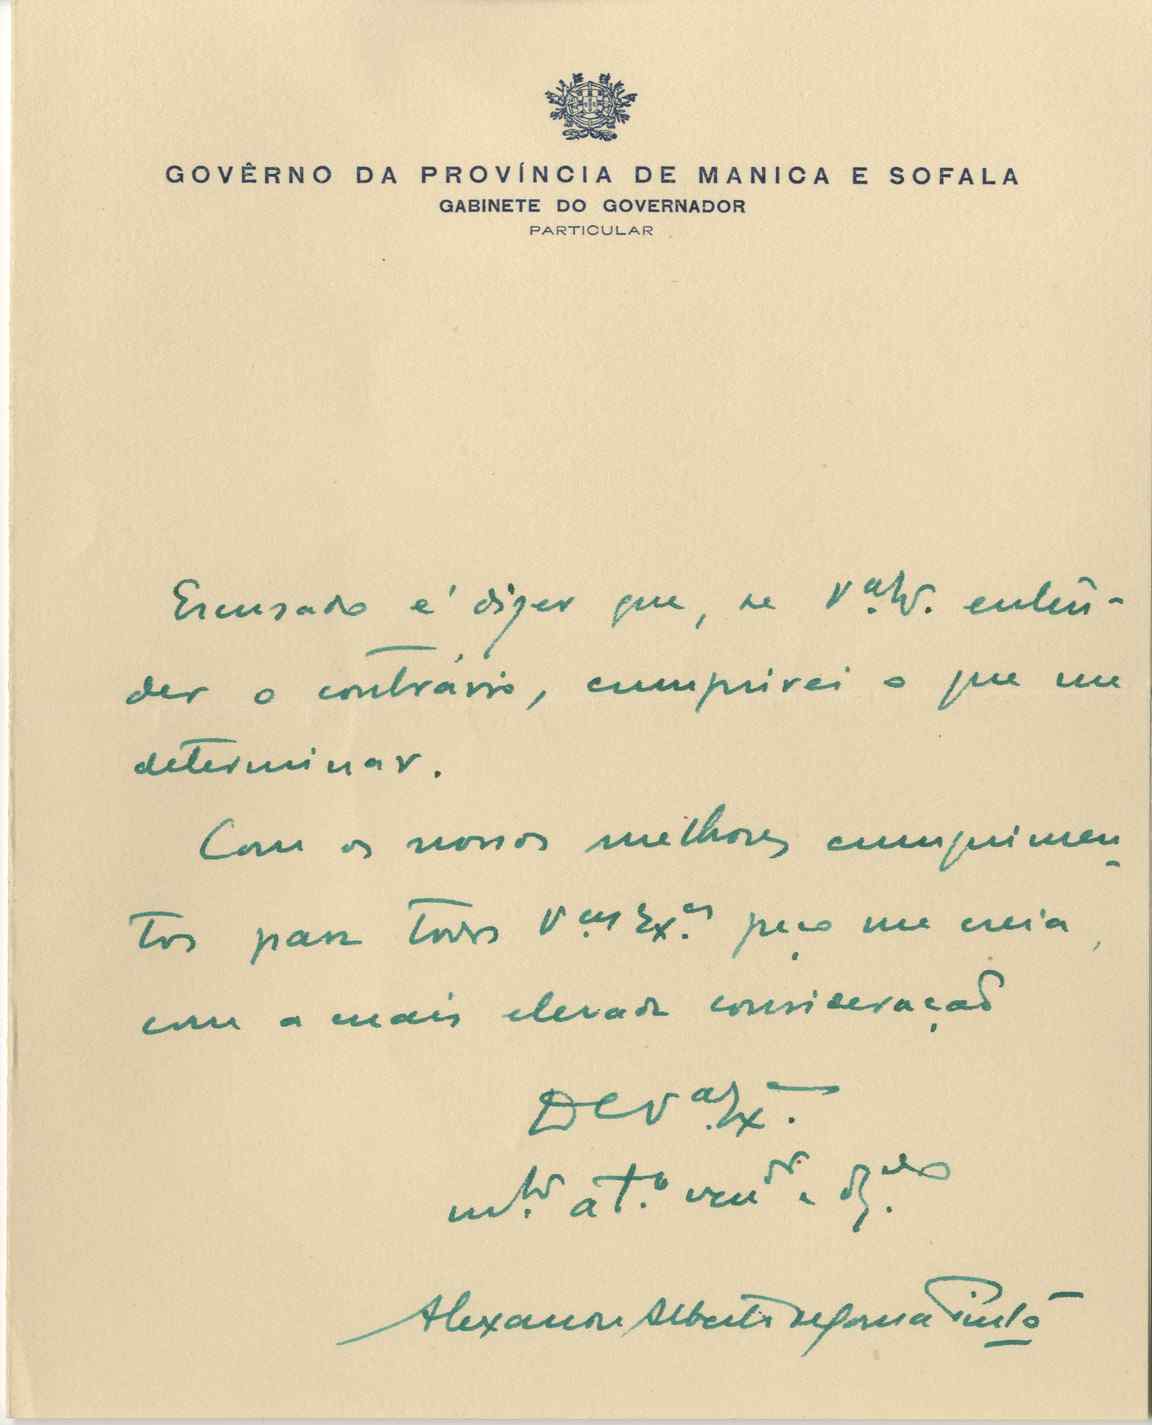 GOVÊRNO DA PROVÍNCIA DE MANICA E SOFALA
GABINETE DO GOVERNADOR
PARTICULAR
Escusado é dizer que, se V.ª entên-
der o contrário, cumprirei o que me
determinar.
Com os nossos melhores cumprimen-
tos para todos V.as Ex.as peço me creia,
com a mais elevada consideração
De V.ª Ex.
m.to at.º ven.dor e
Alexandre Alberto de Sousa Pinto